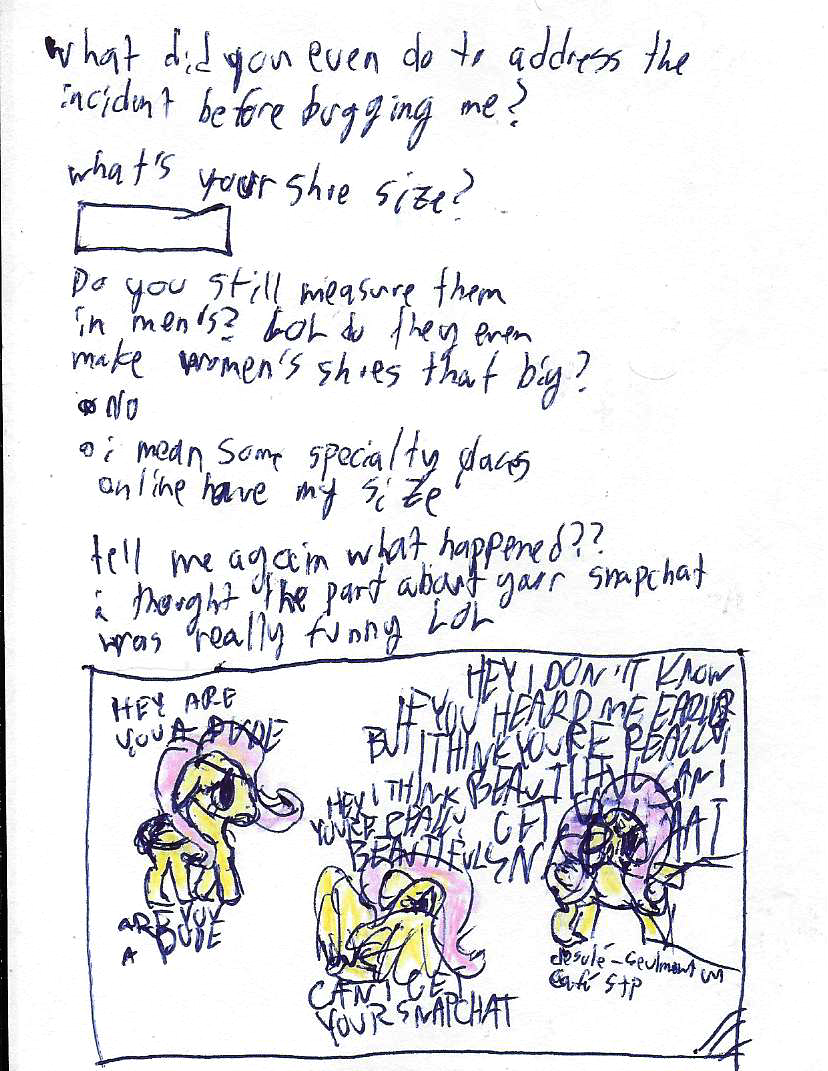 What did you even do to address the
incident before bugging me?
what's your shoe size?
Do you still measure them
in men's? LOL do they even
make women's shoes that big?
No
i mean some specialty places
online have my size
tell me again what happened??
i thought the part about your snapchat
was really funny LOL
HEY ARE
YOU A DUDE
ARE YOU
A DUDE
HEY I THINK
YOU'RE REALLY
BEAUTIFUL
CAN I GET
YOUR SNAPCHAT
HEY I DON'T KNOW
IF YOU HEARD ME EARLIER
BUT I THINK YOU'RE REALLY
BEAUTIFUL CAN I
GET
desolé - seulment un
café stp